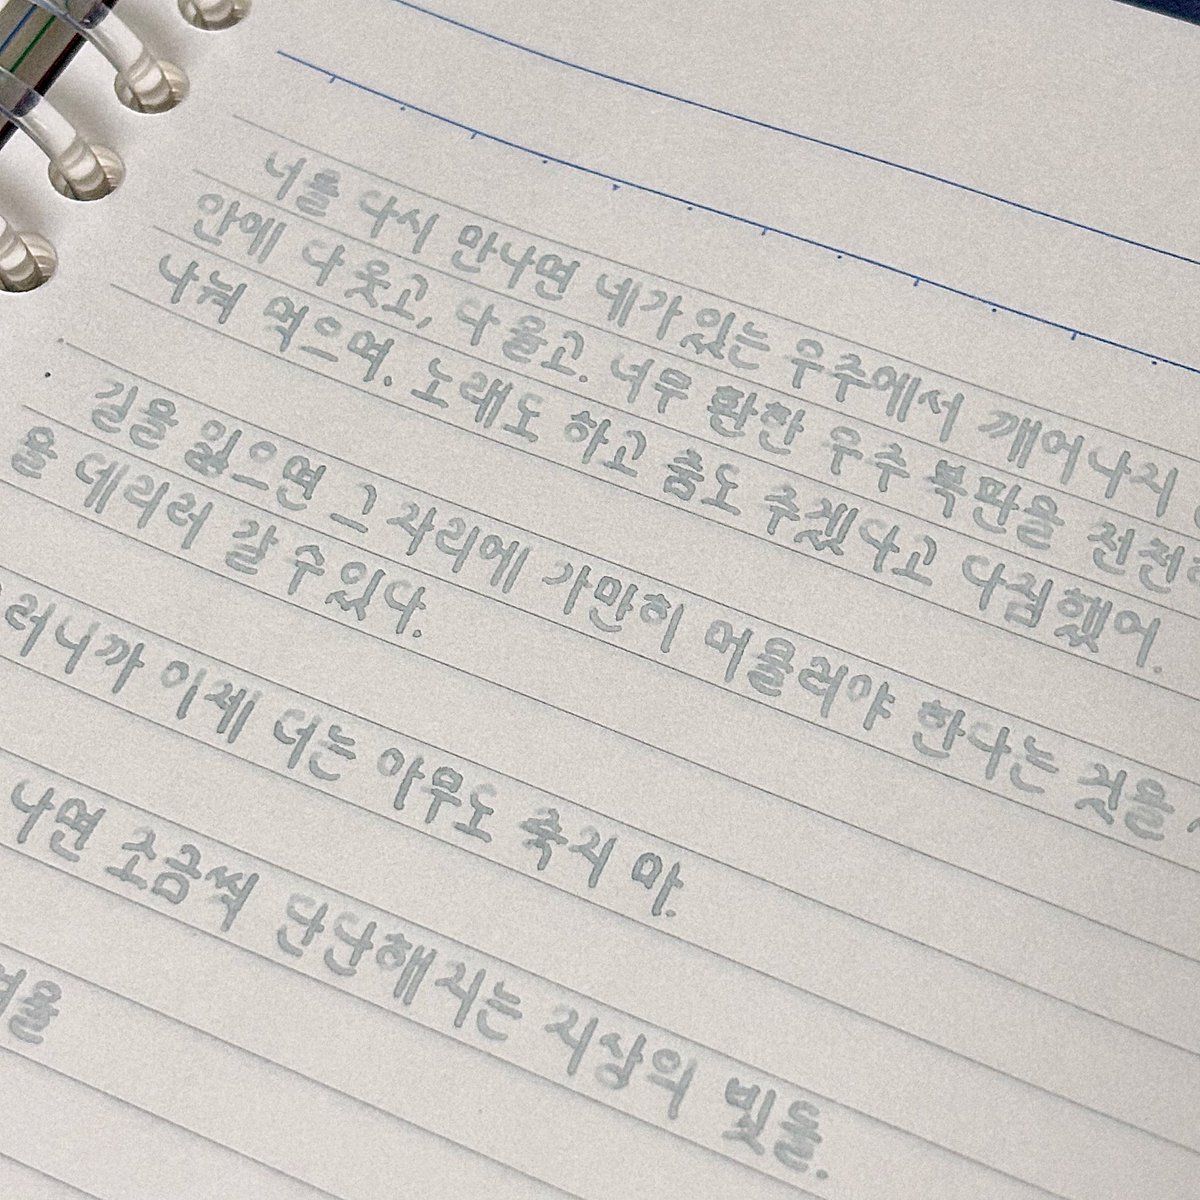 너를 다시 만나면 네가 있는 우주에서 깨어나지
안에 다 웃고, 다 울고. 너무 환한 우주 복판을 천천
나눠 먹으며. 노래도 하고 춤도 추겠다고 다짐했어.
길을 잃으면 그 자리에 가만히 머물러야 한다는 것을
을 데리러 갈 수 있다.
러니까 이제 더는 아무도 죽지 마.
나면 조금씩 단단해지는 지상의 빗물.
겨울